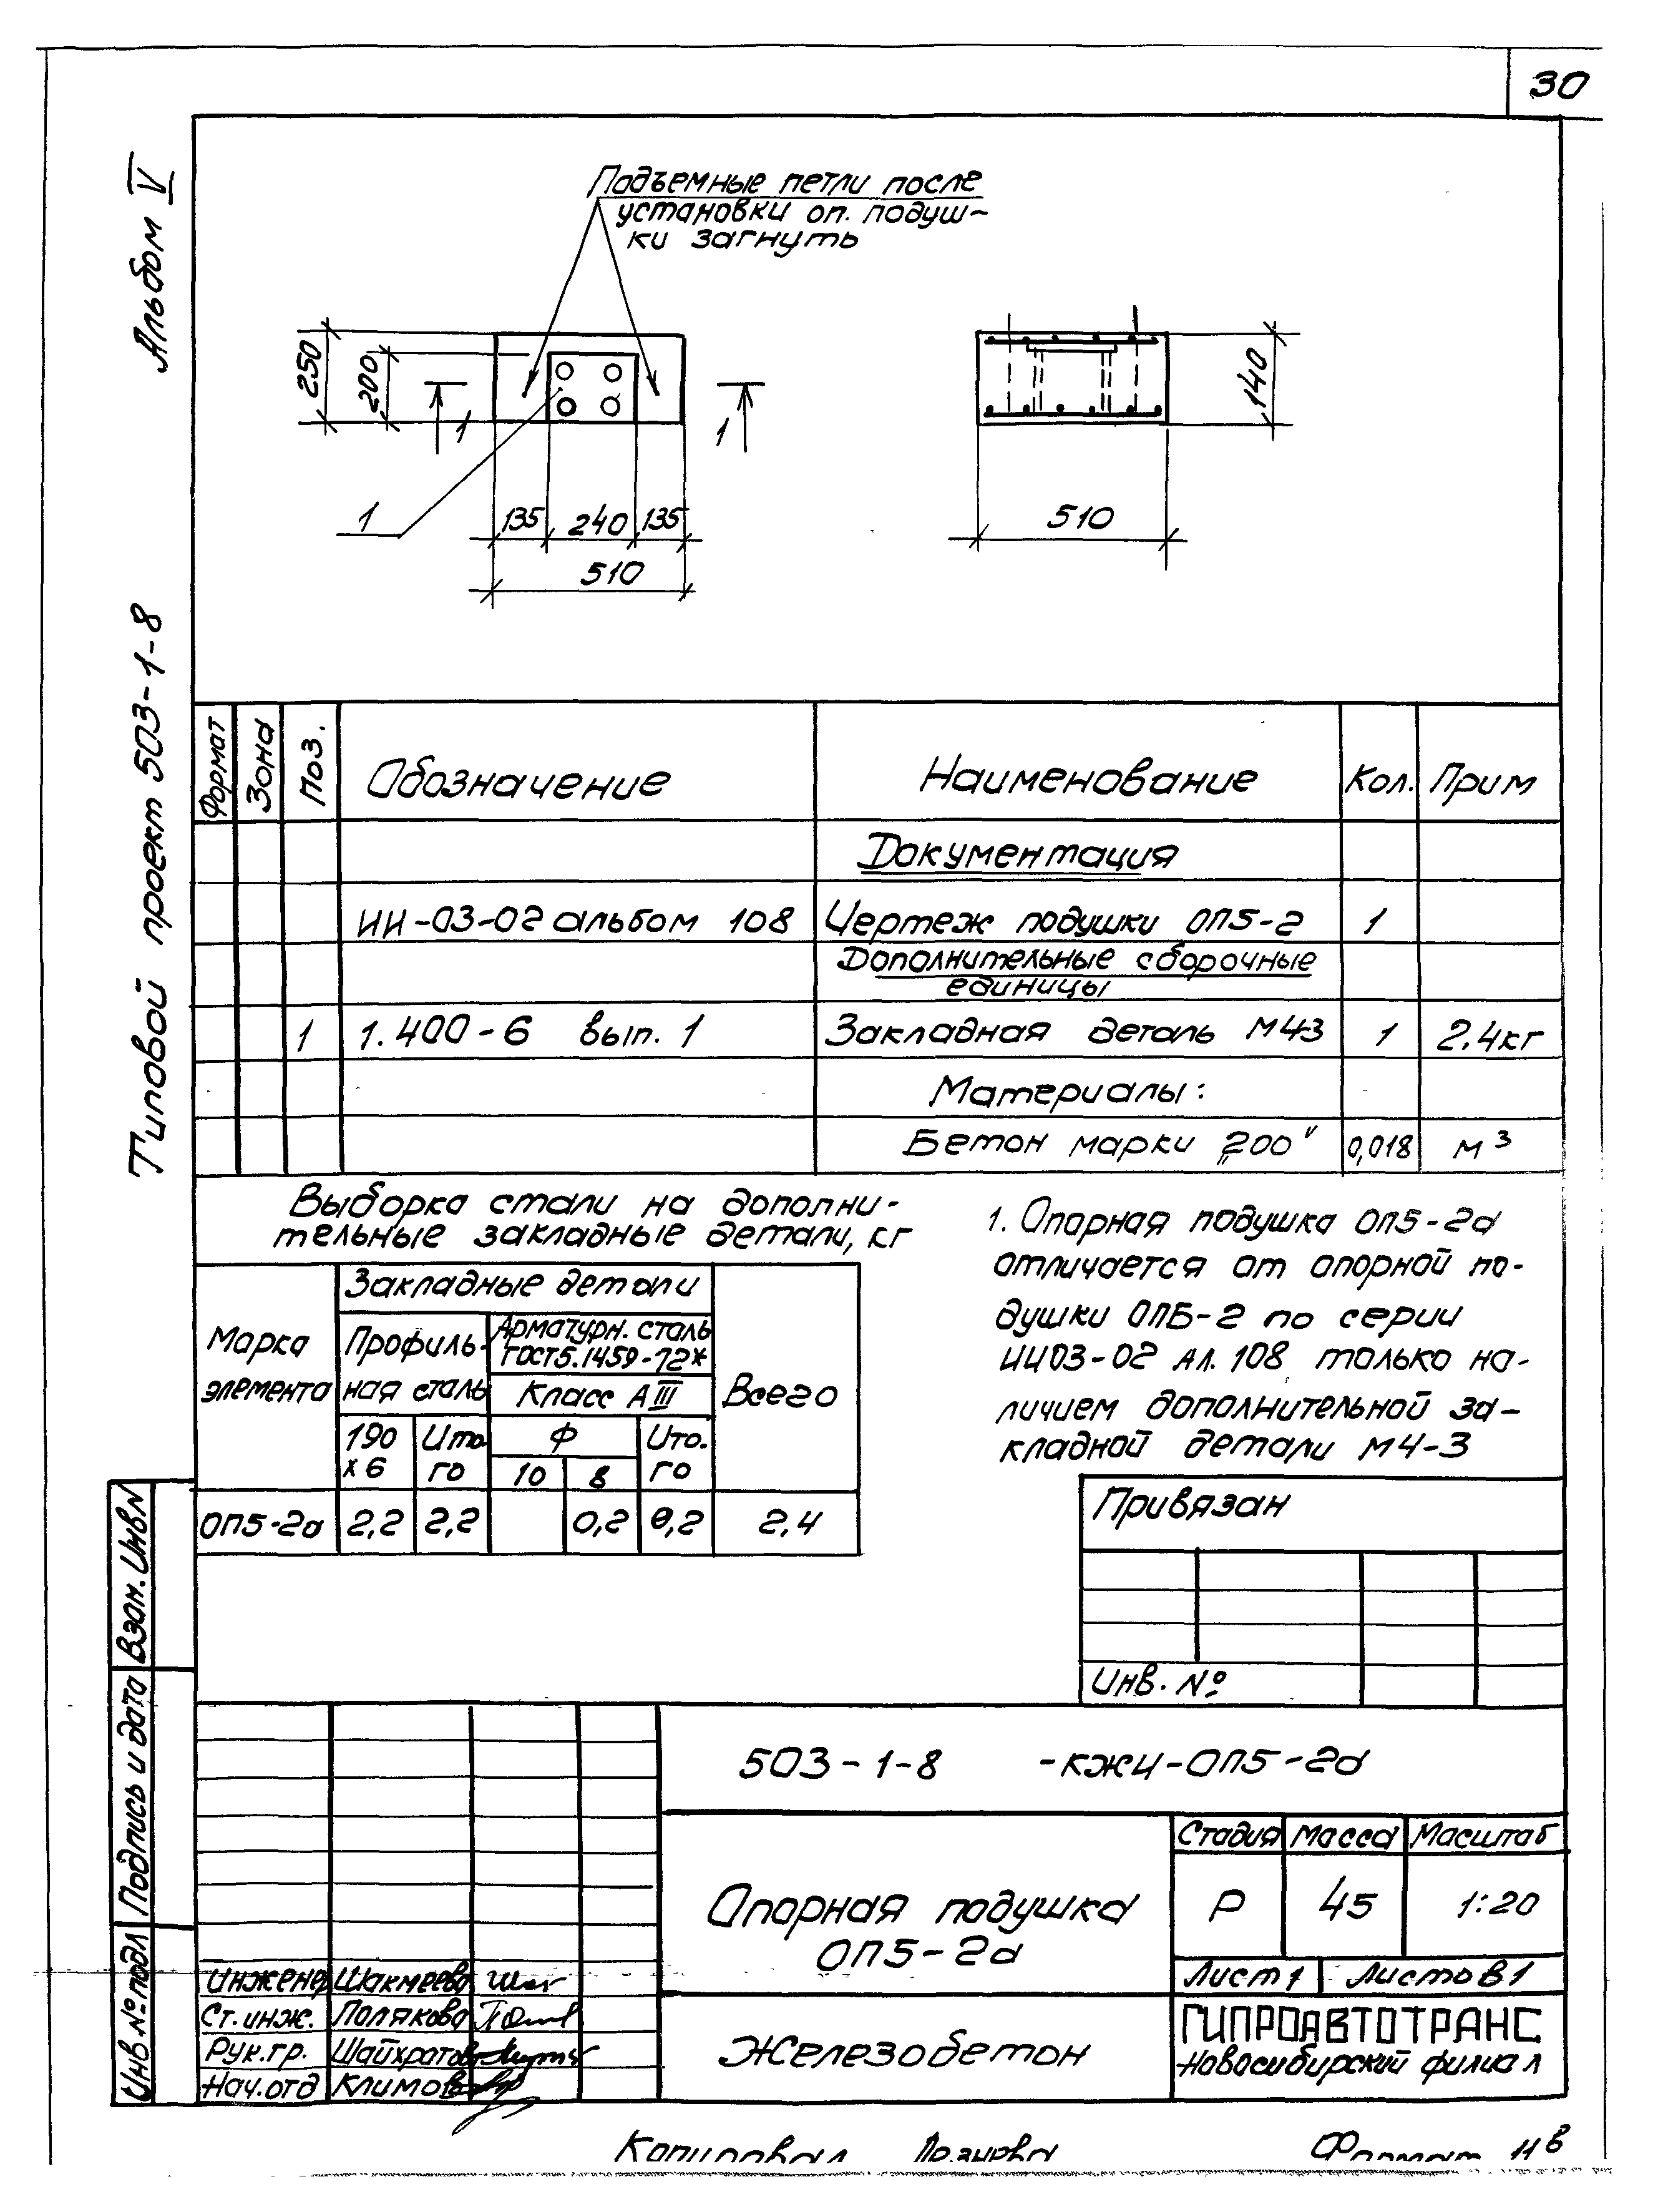 30
Альбом V
Типовой проект 503-1-8
Подъемные петли после
установки оп. подуш-
ки загнуть
250
200
1
1
1
135
240
135
510
140
510
Формат Зона Поз. Обозначение Наименование Кол. Прим
Документация
ИИ-03-02 альбом 108 Чертеж подушки ОП5-2 1
Дополнительные сборочные
единицы
1 1.400-6 вып. 1 Закладная деталь М43 1 2.4кг
Материалы:
Бетон марки „200" 0,018 м³
Выборка стали на дополни-
тельные закладные детали, кг
Марка элемента
Закладные детали
Профиль-
ная сталь
Арматурн. сталь
ГОСТ5.1459-72*
Класс АIII
Всего
190
х6
Ито
го
Ф
10 8
Ито.
го
ОП5-2а 2,2 2,2 0,2 0,2 2,4
1. Опорная подушка ОП5-2а
отличается от опорной по-
душки ОПБ-2 по серии
ИИ03-02 Ал. 108 только на-
личием дополнительной за-
кладной детали М4-3
Привязан
Инв. №
Взам. Инв N
Подпись и дата
Инв № подл
503-1-8 -КЖИ-ОП5-2а
Опорная подушка
ОП5-2а
Стадия Масса Масштаб
Р 45 1:20
Лист 1 Листов 1
Железобетон
ГИПРОАВТОТРАНС
Новосибирский филиал
Инженер Шакмеева
Ст. инж. Полякова
Рук.гр. Шайхратов
Нач.отд Климов
Копировал
Формат 11в